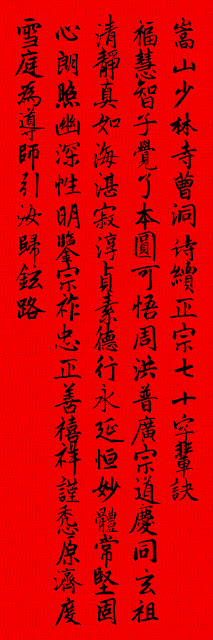 嵩山少林寺曹洞诗續正宗七十字輩訣
福慧智子覺了本圓可悟周洪普廣宗道慶同玄祖
清靜真如海湛寂淳貞素德行永延恒妙體常堅固
心朗照幽深性明鑒宗祚忠正善禧祥謹愨原濟度
雪庭為導師引汝歸鉉路